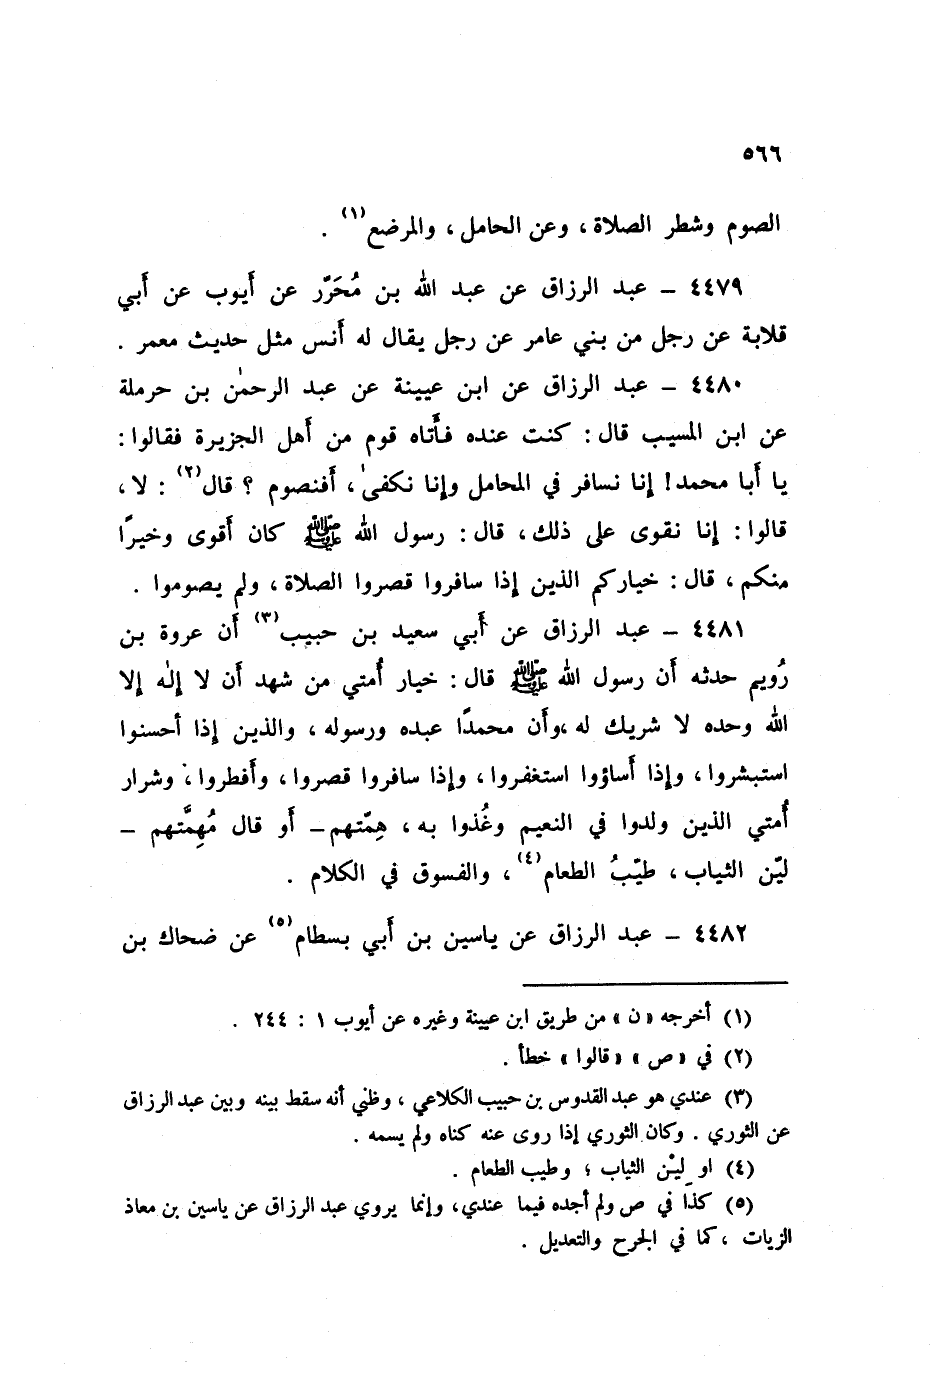 ٥٦٦
الصوم وشطر الصلاة ، وعن الحامل ، والمرضع(١) .
٤٤٧٩ – عبد الرزاق عن عبد الله بن مُحَرّر عن أيوب عن أبي
قلابة عن رجل من بني عامر عن رجل يقال له أنس مثل حديث معمر .
٤٤٨٠ – عبد الرزاق عن ابن عيينة عن عبد الرحمٰن بن حرملة
عن ابن المسيب قال : كنت عنده فأتاه قوم من أهل الجزيرة فقالوا :
يا أبا محمد! إنا نسافر في المحامل وإنا نكفىٰ، أفنصوم ؟ قال(٢) : لا ،
قالوا : إنا نقوى على ذلك ، قال : رسول الله ﷺ كان أقوى وخيرًا
منكم ، قال : خياركم الذين إذا سافروا قصروا الصلاة ، ولم يصوموا .
٤٤٨١ – عبد الرزاق عن أبي سعيد بن حبيب(٣) أن عروة بن
رُويم حدثه أن رسول الله ﷺ قال : خيار أُمتي من شهد أن لا إلٰه إلا
الله وحده لا شريك له ،وأن محمدًا عبده ورسوله ، والذين إذا أحسنوا
استبشروا ، وإذا أساؤوا استغفروا ، وإذا سافروا قصروا ، وأفطروا ، وشرار
أُمتي الذين ولدوا في النعيم وغُذوا به ، هِمّتهم – أو قال مُهِمَّتهم –
ليّن الثياب ، طيّبُ الطعام(٤) ، والفسوق في الكلام .
٤٤٨٢ – عبد الرزاق عن ياسين بن أبي بسطام(٥) عن ضحاك بن
(١) أخرجه «ن» من طريق ابن عيينة وغيره عن أيوب ١ : ٢٤٤ .
(٢) في «ص» «قالوا» خطأ .
(٣) عندي هو عبد القدوس بن حبيب الكلاعي ، وظني أنه سقط بينه وبين عبد الرزاق
عن الثوري . وكان الثوري إذا روى عنه كناه ولم يسمه .
(٤) او لِيْن الثياب ؛ وطيب الطعام .
(٥) كذا في ص ولم أجده فيما عندي، وإنما يروي عبد الرزاق عن ياسين بن معاذ
الزيات ، كما في الجرح والتعديل .